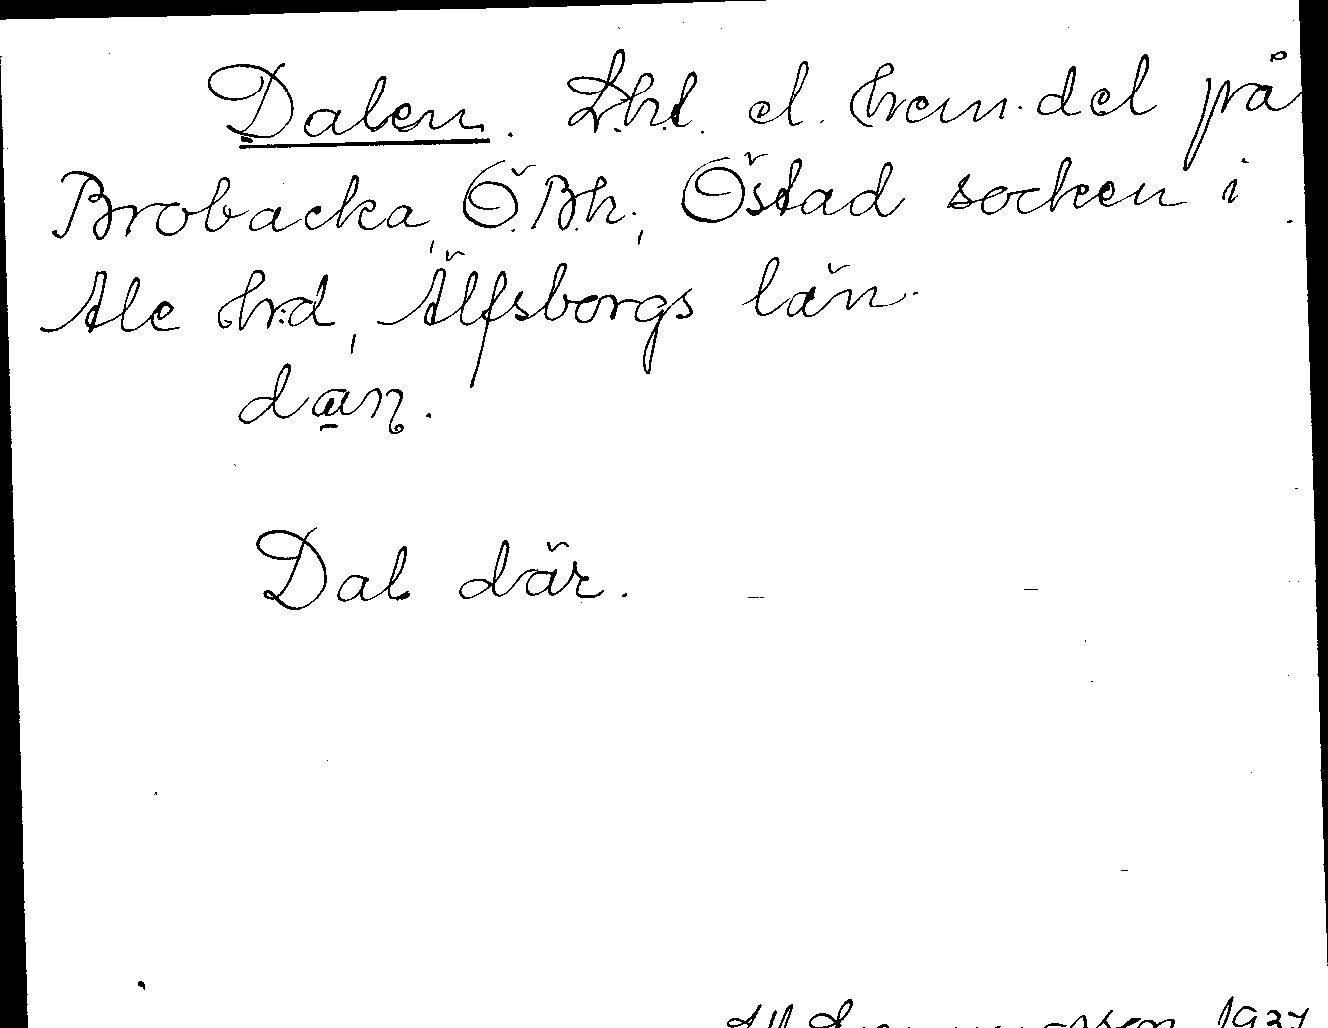 Dalen. Lht. el. hem.del på
Brobacka, Ö.B.h., Östad socken i
Ale hrd, Älfsborgs län.
da̱ṇ.
Dal där.
1937